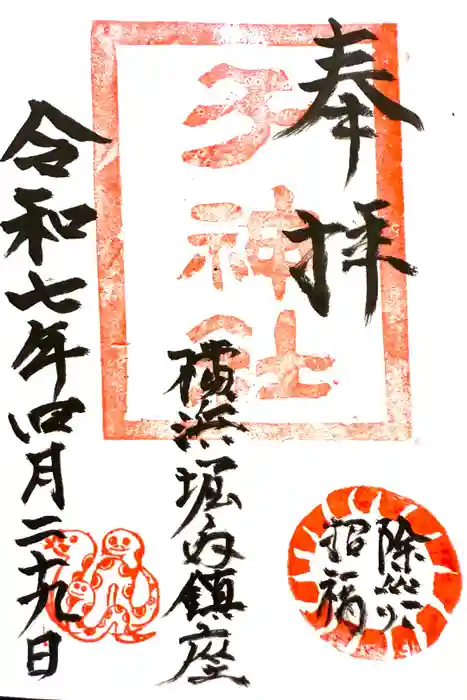 奉拝
子神社
横浜堀ノ内鎮座
令和七年四月二十九日
除災
招福